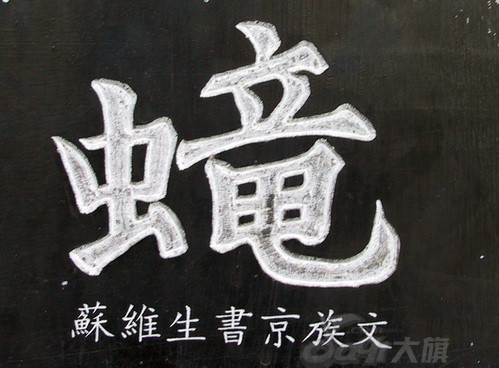 𧍰
蘇維生書京族文
大旗